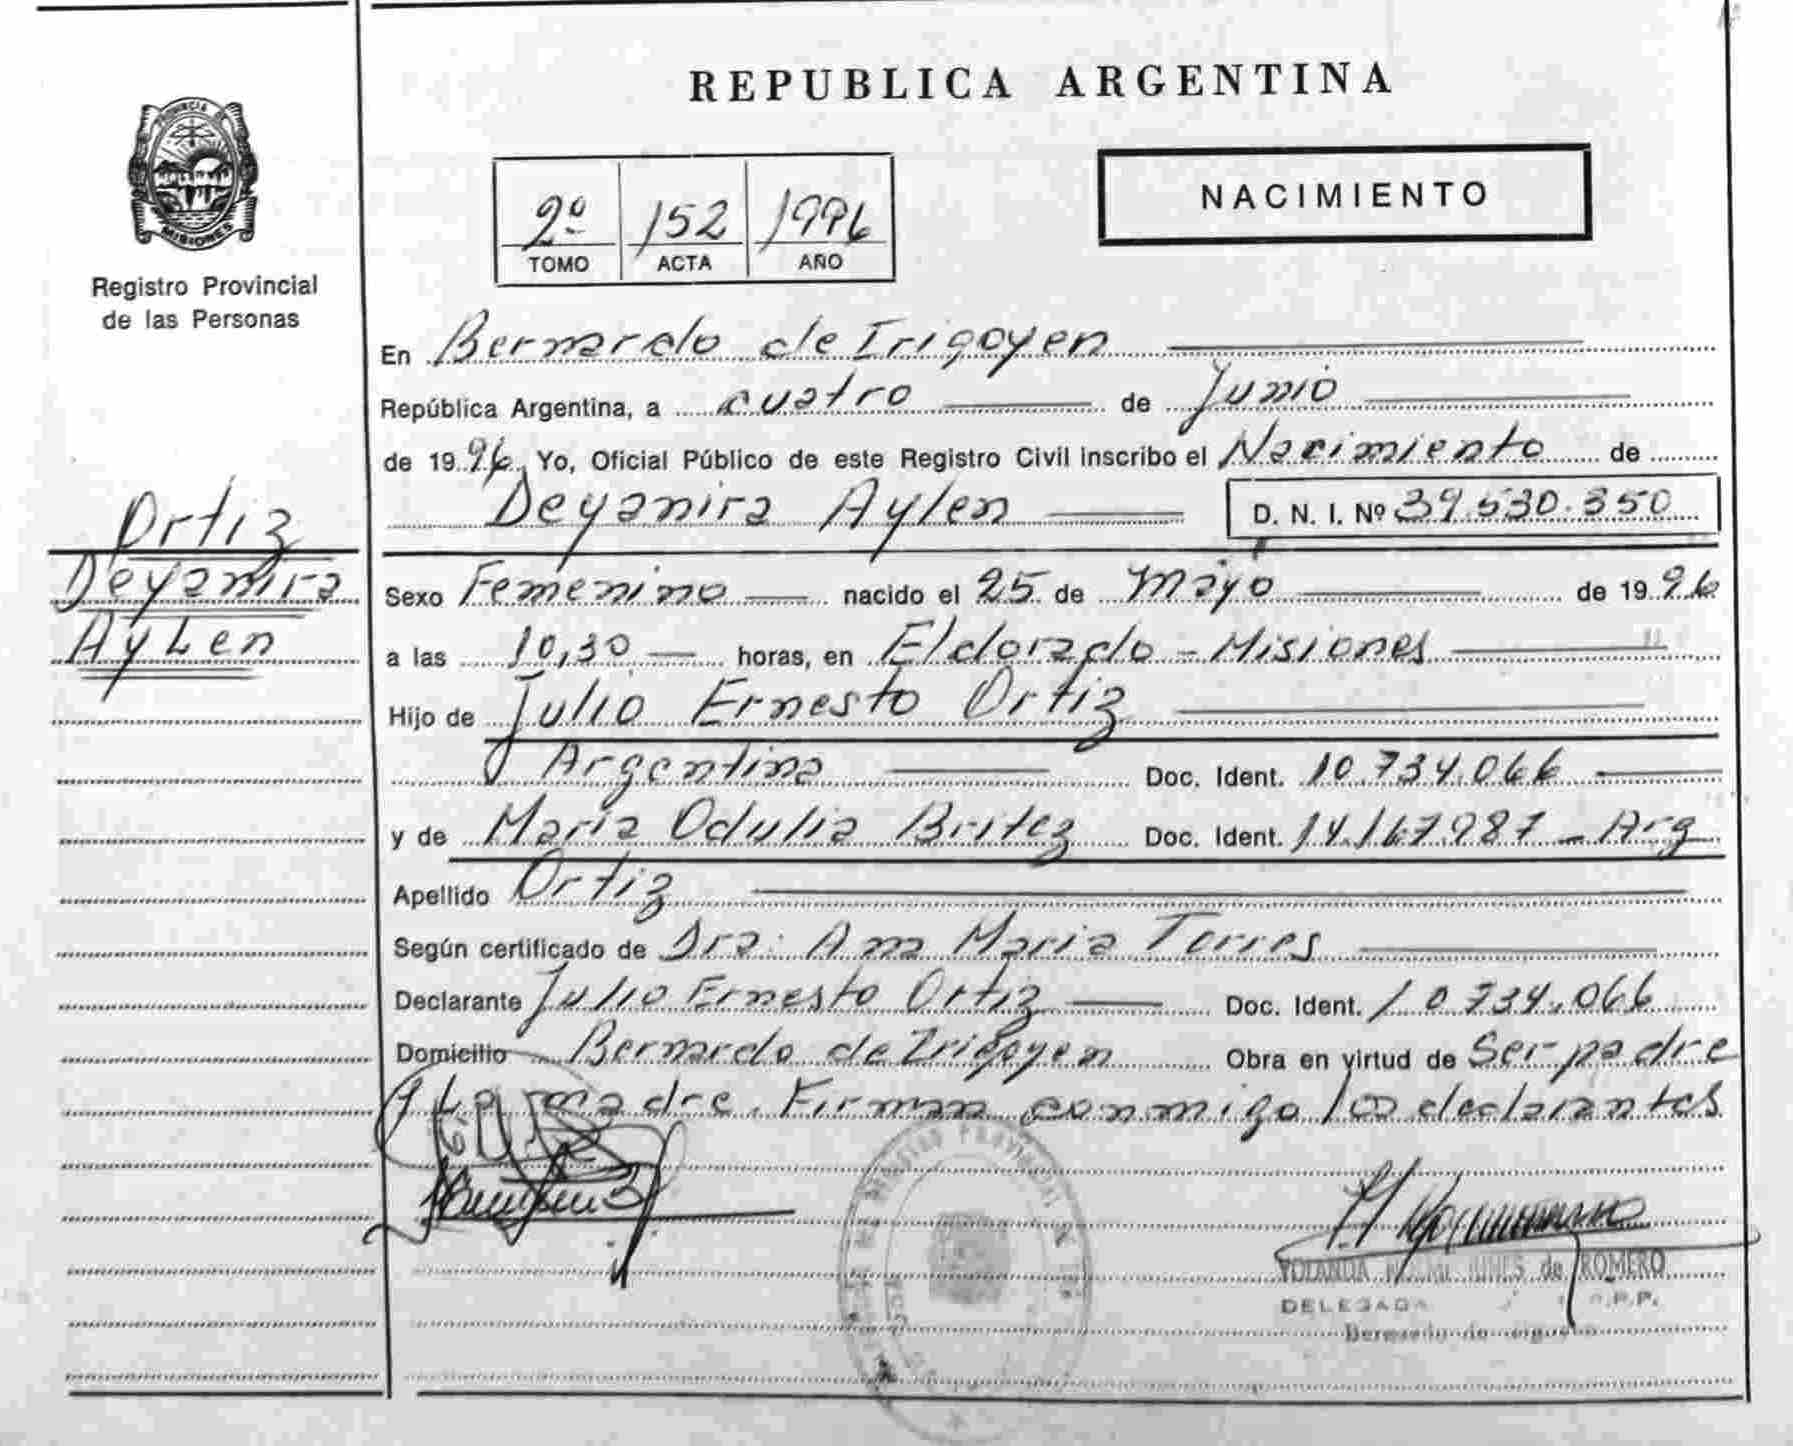 REPUBLICA ARGENTINA
PROVINCIA DE
MISIONES
Registro Provincial
de las Personas
NACIMIENTO
2º 152 1996
TOMO ACTA AÑO
En Bernardo de Irigoyen
República Argentina, a cuatro de Junio
de 1996, Yo, Oficial Público de este Registro Civil inscribo el Nacimiento de
Deyanira Aylen D. N. I. Nº 39.530.350
Ortiz
Deyanira
Aylen
Sexo Femenino nacido el 25 de Mayo de 1996
a las 10,30 horas, en Eldorado - Misiones
Hijo de Julio Ernesto Ortiz
Argentina Doc. Ident. 10.734.066
y de Maria Odulia Britez Doc. Ident. 14.167.987 - Arg
Apellido Ortiz
Según certificado de Dra: Ana Maria Torres
Declarante Julio Ernesto Ortiz Doc. Ident. 10.734.066
Domicilio Bernardo de Irigoyen Obra en virtud de Ser padre
y La madre. Firman conmigo los declarantes
REGISTRO PROVINCIAL DE LAS
YOLANDA de ROMERO
DELEGADA R.P.P.
Bernardo de Irigoyen